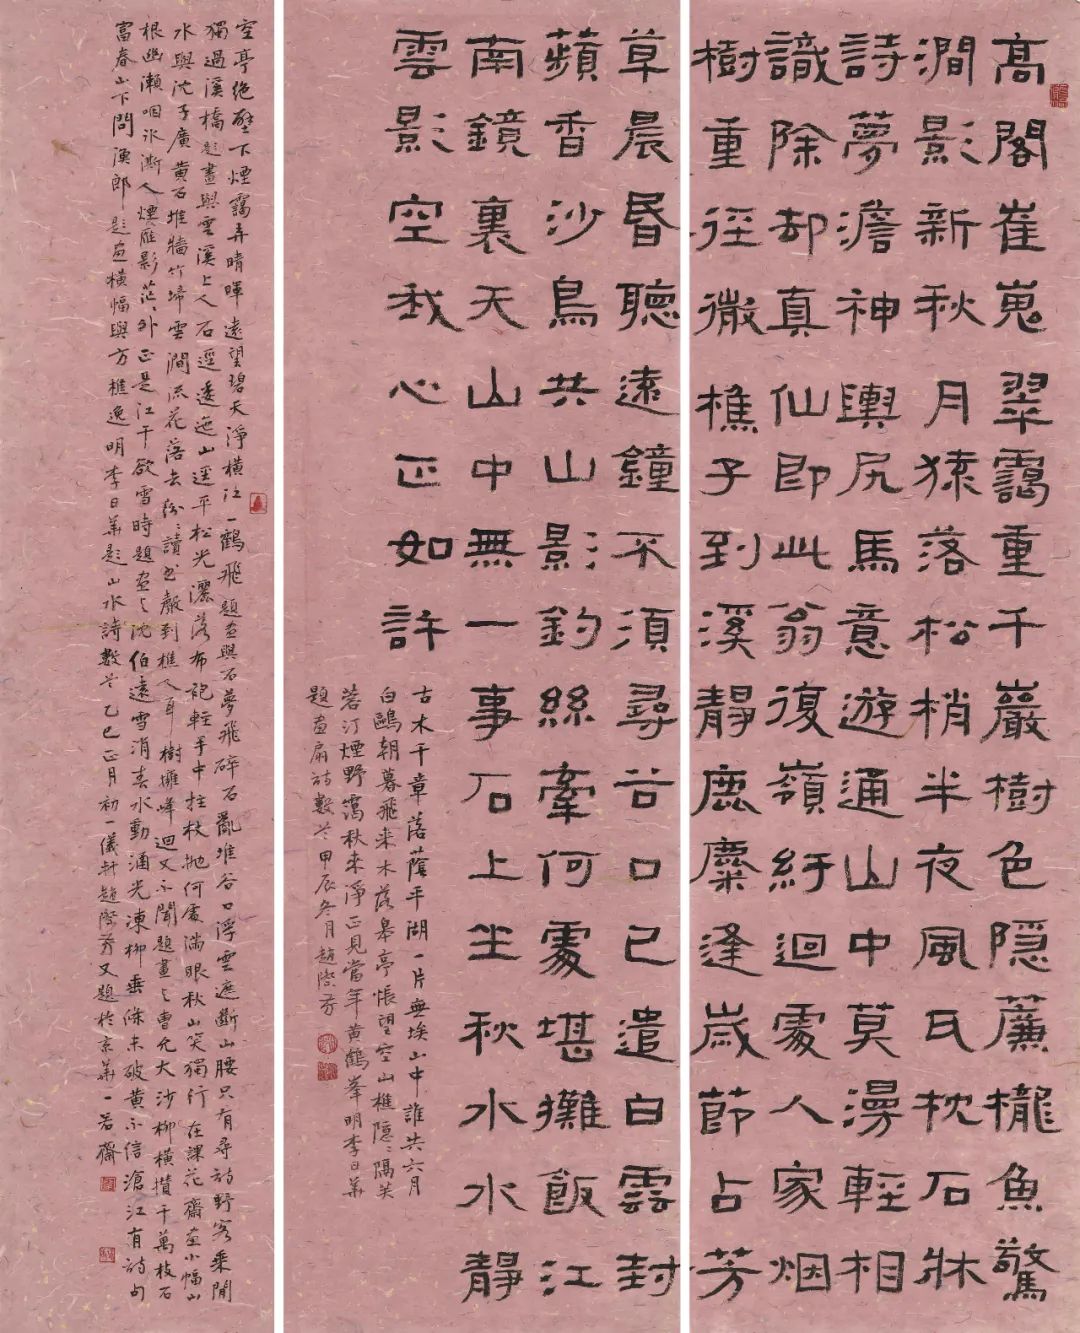 高閣崔嵬翠靄重千巖樹色隱簾櫳魚驚
澗影新秋月猿落松梢半夜風氏枕石牀
詩夢澹神輿尻馬意遊通山中莫漫輕相
識除却真仙即此翁復嶺紆迴處人家烟
樹重徑微樵子到溪靜鹿麋逢歲節占芳
草晨昏聽遠鐘不須尋谷口已遣白雲封
蘋香沙鳥共山影釣絲牽何處堪攤飯江
南鏡裏天山中無一事石上坐秋水水靜
雲影空我心正如許
古木千章落蔭平湖一片無埃山中誰共六月
白鷗朝暮飛来木落皋亭悵望空山樵隱〻隔芙
蓉汀煙野靄秋来淨正見當年黃鶴峯明李日華
題畫扇詩數首甲辰冬月趙際芳
空亭絕壁下煙靄弄晴暉遠望碧天淨橫江一鶴飛題畫與石夢飛碎石亂堆谷口浮雲遮斷山腰只有尋詩野客乘閒
獨過溪橋題畫與雲溪上人石逕逶迤山逕平松光灑落布袍輕手中拄杖抛何處滿眼秋山笑獨行在課花齋畫小幅山
水與沈子廣黃石堆牆竹埽雲澗流花落去紛〻讀書聲到樵人耳樹擁峰迴又不聞題畫與曹允大沙柳橫攢千萬枝石
根幽瀨咽冰澌人煙雁影茫〻外正是江干欲雪時題畫與沈伯遠雪消春水動涵光凍柳垂條未破黃不信滄江有詩句
富春山下問漁郎題畫橫幅與方樵逸明李日華題山水詩數首乙巳正月初一儀封趙際芳又題於京華一若齋